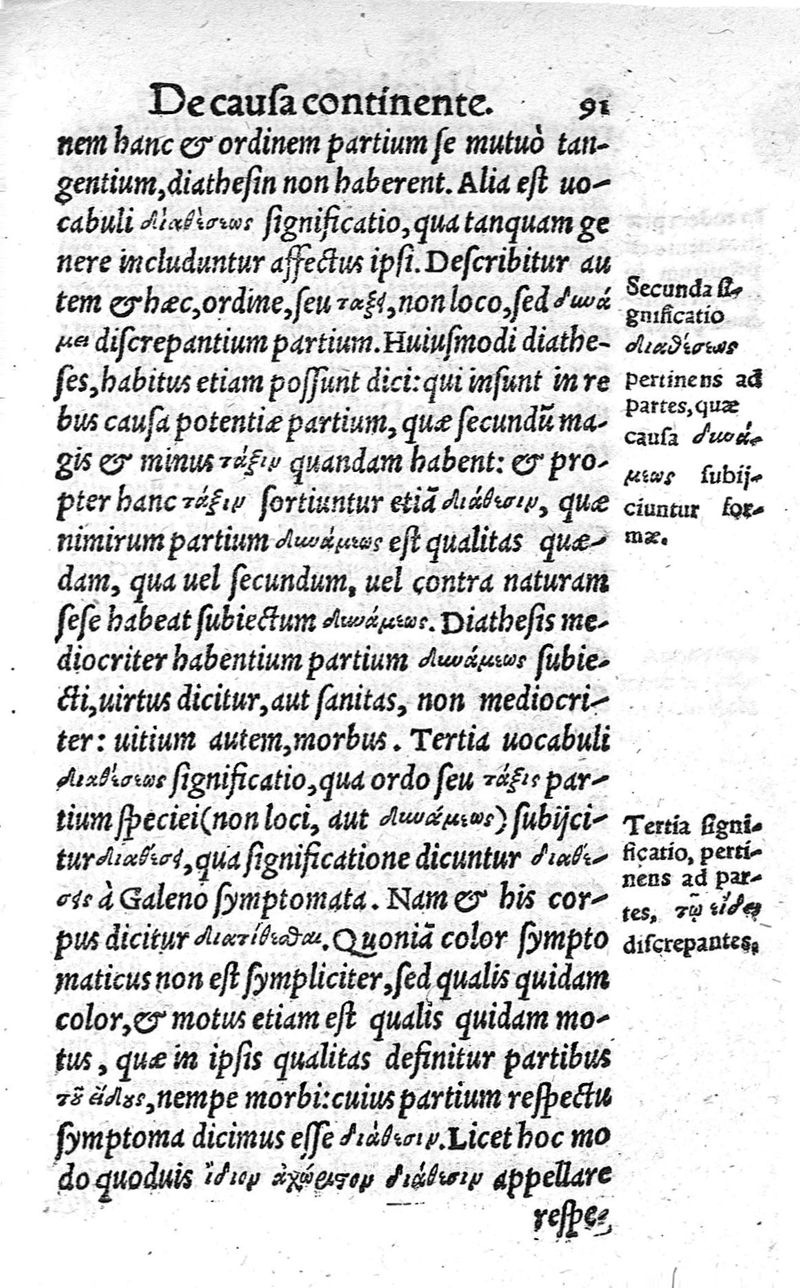 De causa continente. 91
nem hanc & ordinem partium se mutuò tan-
gentium, diathesin non haberent. Alia est uo-
cabuli διαθέσεως significatio, qua tanquam ge
nere includuntur affectus ipsi. Describitur au
tem & hæc, ordine, seu ταξί, non loco, sed δυνά
μει discrepantium partium. Huiusmodi diathe-
ses, habitus etiam possunt dici: qui insunt in re
bus causa potentiæ partium, quæ secundũ ma-
gis & minus τάξιν quandam habent: & pro-
pter hanc τάξιν sortiuntur etiã διάθεσιν, quæ
nimirum partium δυνάμεως est qualitas quæ-
dam, qua uel secundum, uel contra naturam
sese habeat subiectum δυνάμεως. Diathesis me-
diocriter habentium partium δυνάμεως subie-
cti, uirtus dicitur, aut sanitas, non mediocri-
ter: uitium autem, morbus. Tertia uocabuli
διαθέσεως significatio, qua ordo seu τάξις par-
tium speciei (non loci, aut δυνάμεως) subijci-
tur διαθέσι, qua significatione dicuntur διαθέ-
σεις à Galeno symptomata. Nam & his cor-
pus dicitur διατίθεσθαι. Quoniã color sympto
maticus non est sympliciter, sed qualis quidam
color, & motus etiam est qualis quidam mo-
tus, quæ in ipsis qualitas definitur partibus
τοῦ εἴδους, nempe morbi: cuius partium respectu
symptoma dicimus esse διάθεσιν. Licet hoc mo
do quoduis ἴδιον ἀχώριστον διάθεσιν appellare
respe-
Secunda si-
gnificatio
διαθέσεως
pertinens ad
partes, quæ
causa δυνά-
μεως subij-
ciuntur for-
mæ.
Tertia signi-
ficatio, perti-
nens ad par-
tes, τῷ εἴδει
discrepantes,